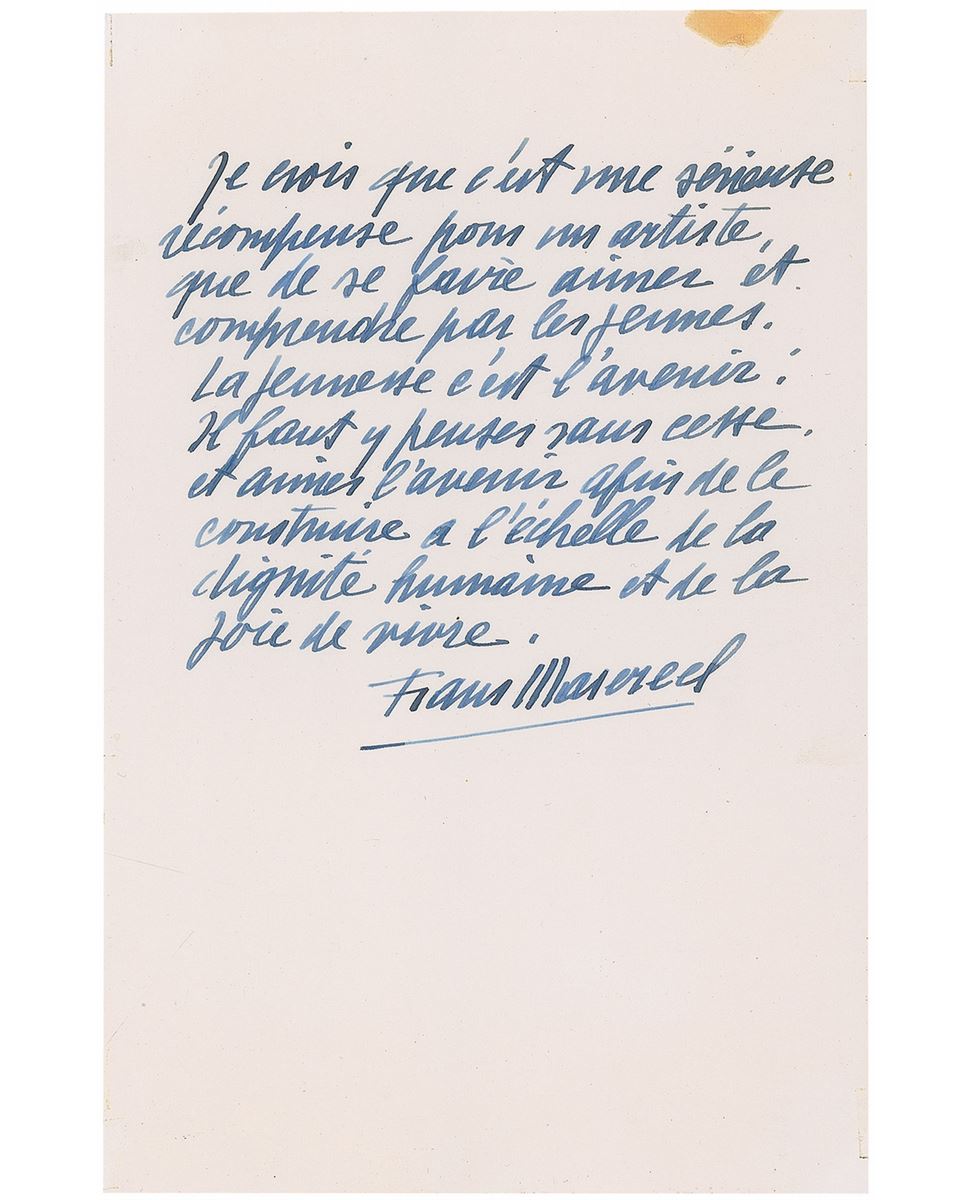 Je crois que c'est une sérieuse
récompense pour un artiste,
que de se faire aimer et
comprendre par les jeunes.
La jeunesse c'est l'avenir !
Il faut y penser sans cesse,
et aimer l'avenir afin de le
construire a l'échelle de la
dignité humaine et de la
joie de vivre.
Frans Masereel